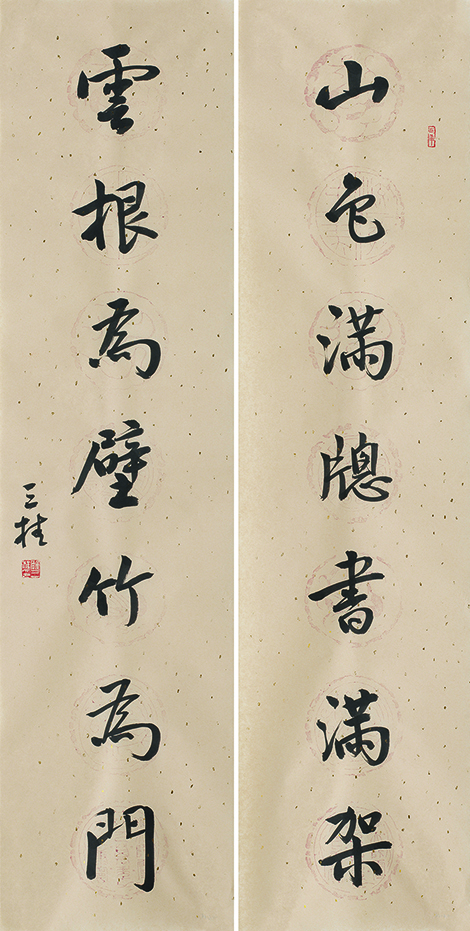 山色满牕書满架
雲根為壁竹為門
三桂